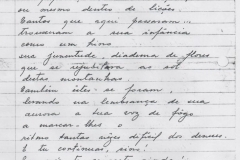 ou mesmo dentro de lições.
Tantos que aqui passaram...
trouxeram a sua infância
como um hino
sua juventude, diadema de flores
que se ao sol
destas montanhas.
Também eles se foram,
levando na lembrança de sua
aurora a sua voz de fogo
a marcar-lhes o
ritmo tantas vezes difícil dos deuses.
E tu continuas, sino!